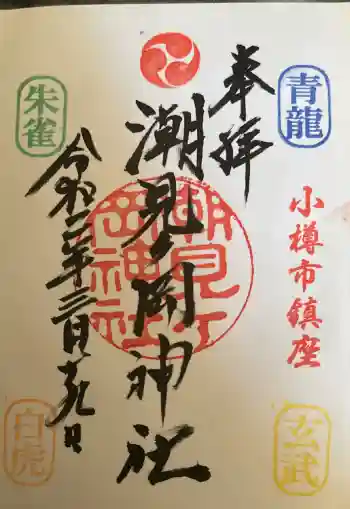 奉拝
青龍
小樽市鎮座
玄武
潮見ヶ岡神社
潮見ヶ岡神社
朱雀
令和二年三月十九日
白虎